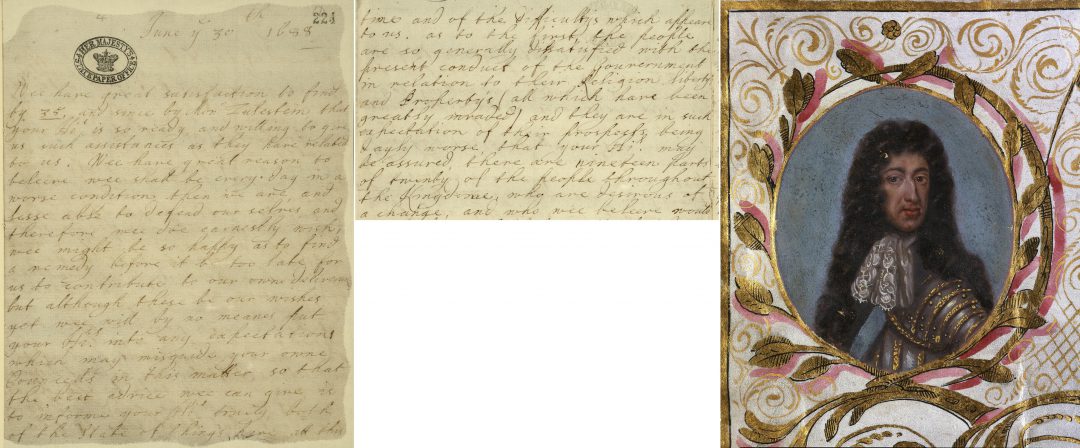 224
June ye 30th 1688
HER MAJESTY'S
STATE PAPER OFFICE
Wee have great satisfaction to find
by 35, and since by Monr Zulestein that
your Hs is so ready and willing to give
us such assistances as they have related
to us. Wee have great reason to
beleive wee shall be every day in a
worse condition then we are, and
lesse able to defend our selves and
therefore wee doe earnestly wish
wee might be so happy as to find
a remedy before it be too late for
us to contribute to our owne deliverance
but although these be our wishes
yet wee will by no means put
your Hs into any expectations
which may misguide your owne
Councels in this matter, so that
the best advice wee can give is
to informe your Hs truly both
of the State of things here at this
time and of the difficultys which appeare
to us. as to the first, the people
are so generally disatisfied with the
present conduct of the Government
in relation to their Religion, libertys
and Propertys, all which have been
greatly invaded, and they are in such
expectation of their prospects being
dayly worse, that your Hs. may
be assured, there are nineteen parts
of twenty of the people throughout
the Kingdome, who are desirous of
a change, and who wee beleive would